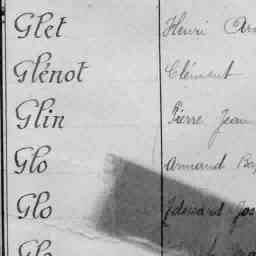 Glet Henri
Glénot Clément
Glin Pierre Jean
Glo Armand
Glo Edouard
Glo